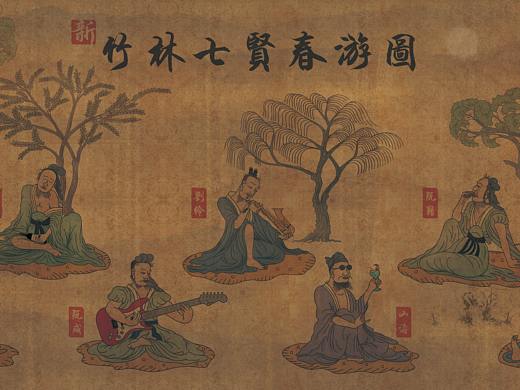 新
竹林七賢春游圖
劉伶
阮籍
阮咸
山濤